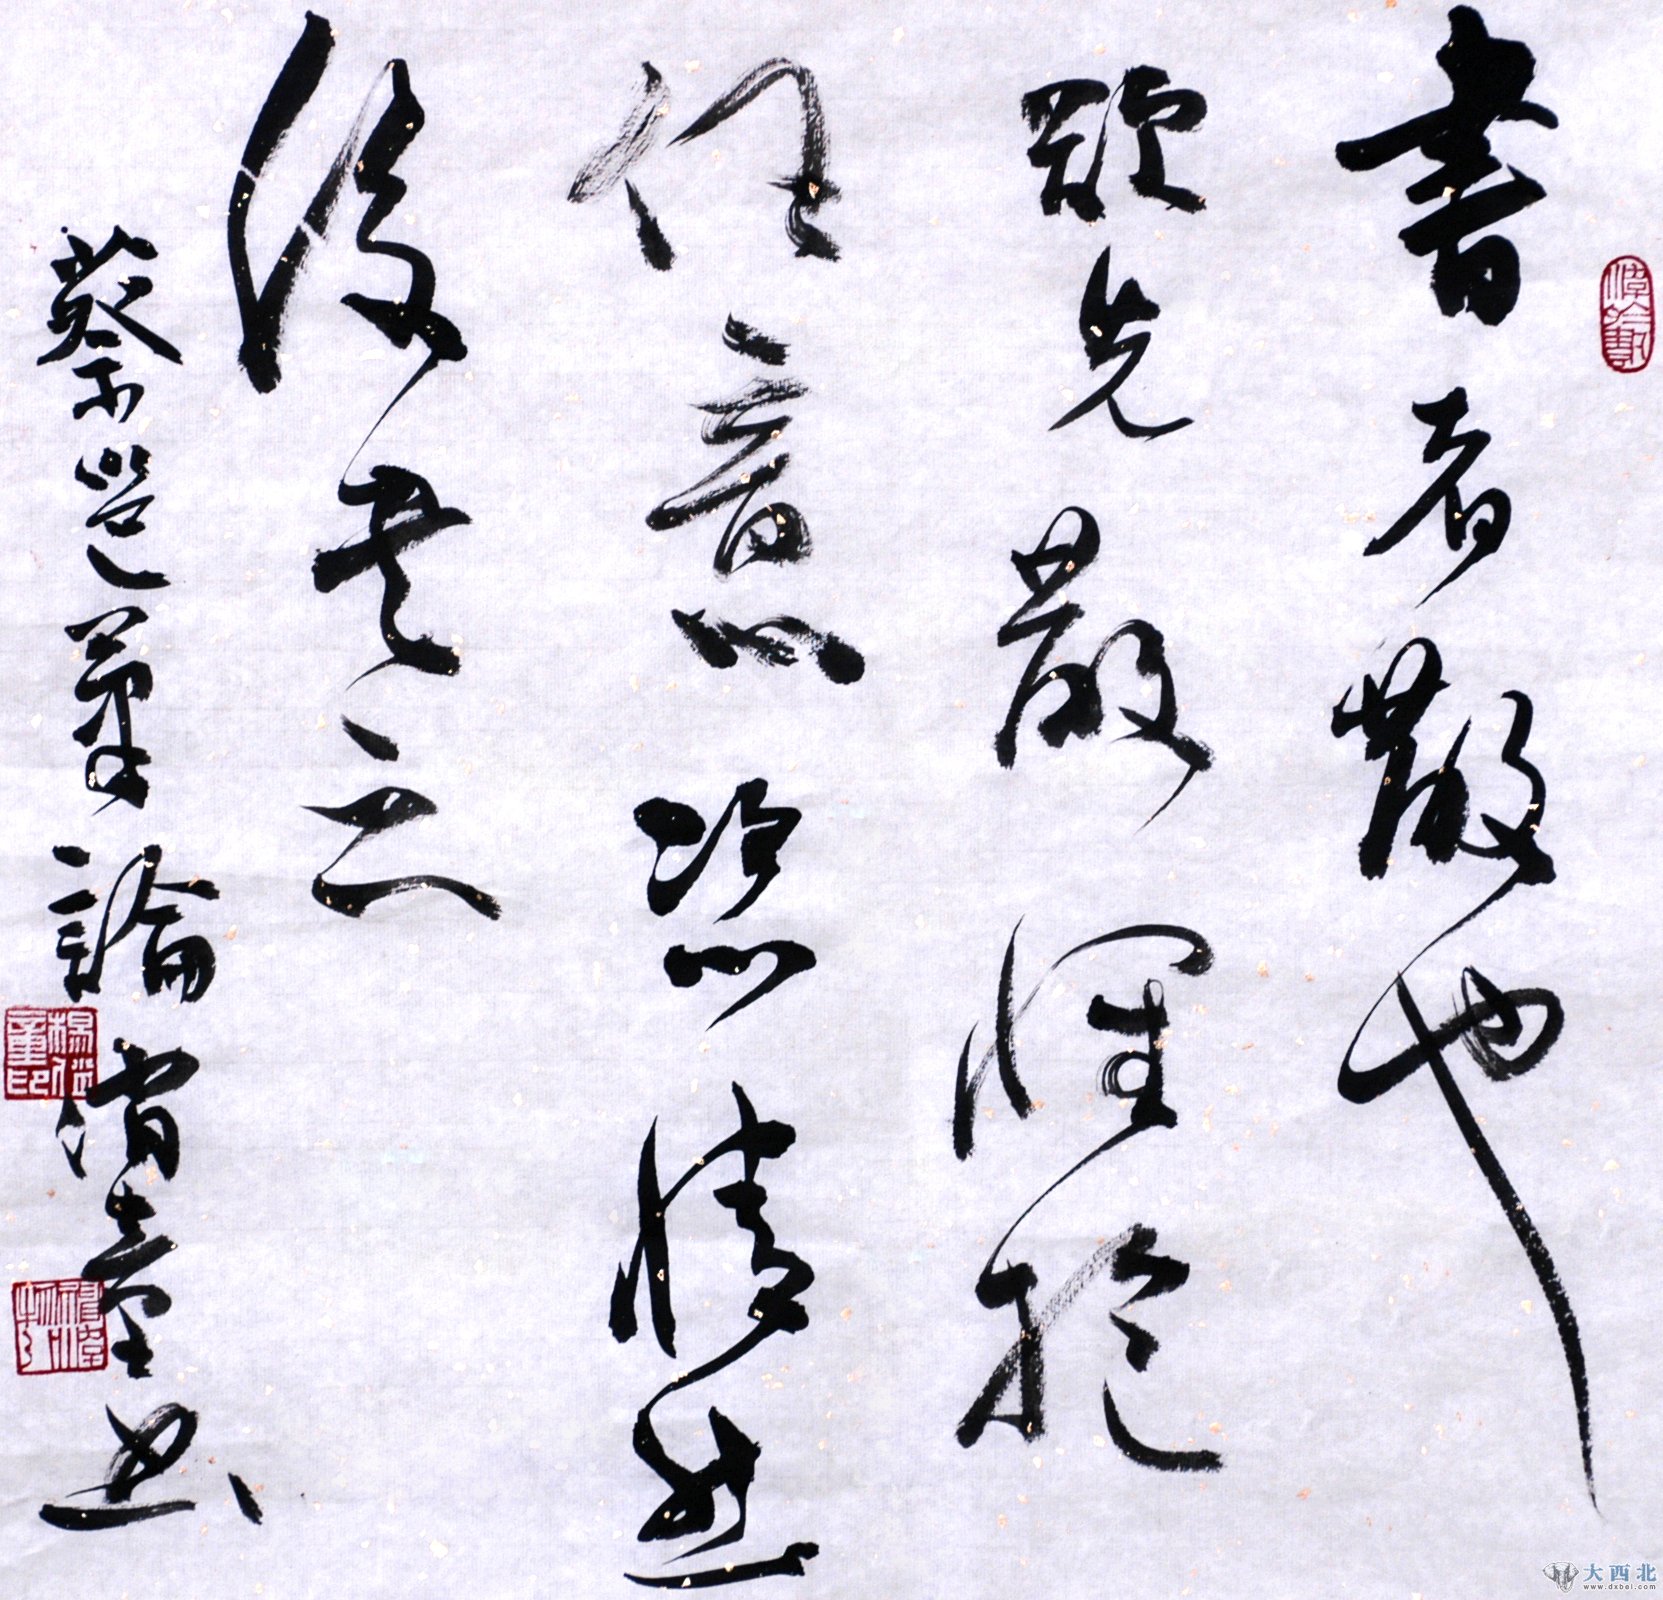 書者散也
欲先散懷抱
任意恣情然
後書之
蔡邕筆論
大西北
www.dxbei.com